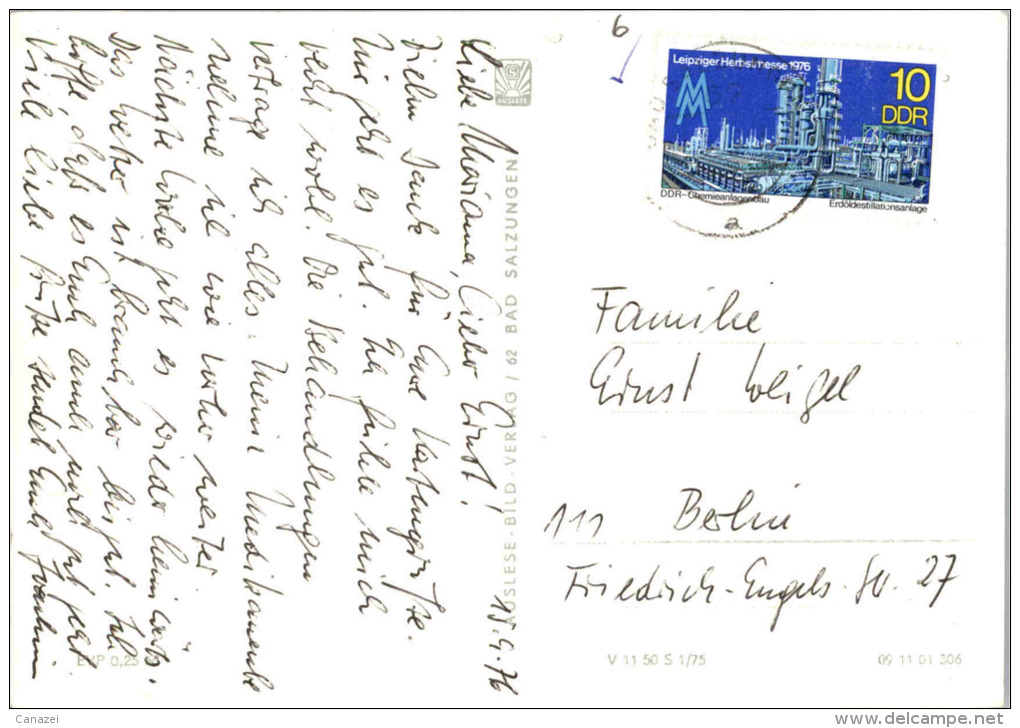 15.9.76
Liebe Marianne, Lieber Ernst!
Vielen Dank für Eure Kartengrüße.
Mir geht es gut. Ich fühle mich
recht wohl. Die Behandlungen
vertrage ich alles. Meine Medikamente
nehme ich wie vorher weiter
Nächste Woche geht es wieder heimwärts.
Das Wetter ist brauchbar bis gut. Ich
hoffe, daß es Euch auch recht gut geht
Viele liebe Grüße sendet Euch Joachim
EVP 0,25
AUSLESE
AUSLESE-BILD-VERLAG / 62 BAD SALZUNGEN
6
Leipziger Herbstmesse 1976
10
DDR
DDR-Chemieanlagenbau
Erdöldestillationsanlage
a
Familie
Ernst Weigel
111 Berlin
Friedrich-Engels-Str. 27
V 11 50 S 1/75
09 11 01 306
Canazei
http://www.delcampe.net